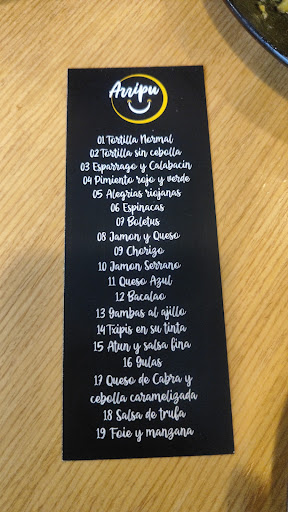 Arripu
01 Tortilla Normal
02 Tortilla sin cebolla
03 Esparrago y Calabacin
04 Pimiento rojo y verde
05 Alegrias riojanas
06 Espinacas
07 Boletus
08 Jamon y Queso
09 Chorizo
10 Jamon Serrano
11 Queso Azul
12 Bacalao
13 Gambas al ajillo
14 Txipis en su tinta
15 Atun y salsa fina
16 Gulas
17 Queso de Cabra y
cebolla caramelizada
18 Salsa de trufa
19 Foie y manzana